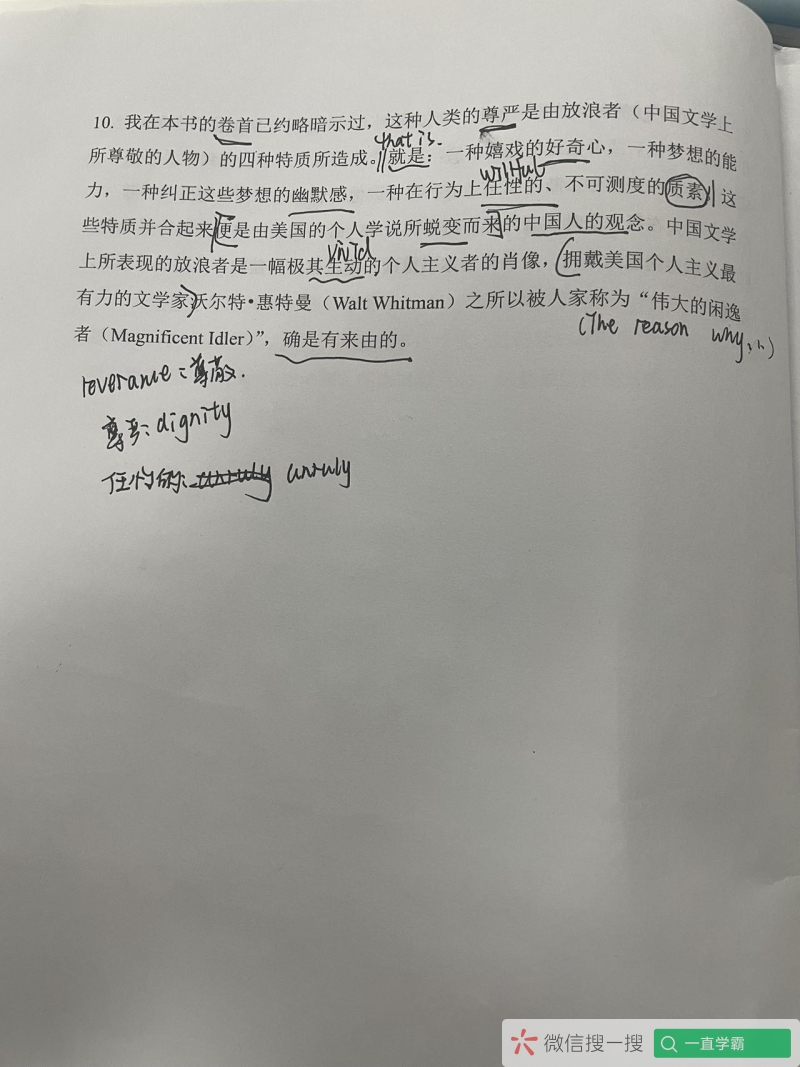 10. 我在本书的卷首已约略暗示过，这种人类的尊严是由放浪者（中国文学上
that is.
所尊敬的人物）的四种特质所造成。就是：一种嬉戏的好奇心，一种梦想的能
wilful
力，一种纠正这些梦想的幽默感，一种在行为上任性的、不可测度的质素 这
些特质并合起来便是由美国的个人学说所蜕变而来的中国人的观念。中国文学
vivid
上所表现的放浪者是一幅极其生动的个人主义者的肖像，拥戴美国个人主义最
有力的文学家 沃尔特•惠特曼（Walt Whitman）之所以被人家称为“伟大的闲逸
者（Magnificent Idler）”，确是有来由的。
(The reason why...)
reverance: 尊敬.
尊严: dignity
任性的: unruly unruly
微信搜一搜 一直学霸